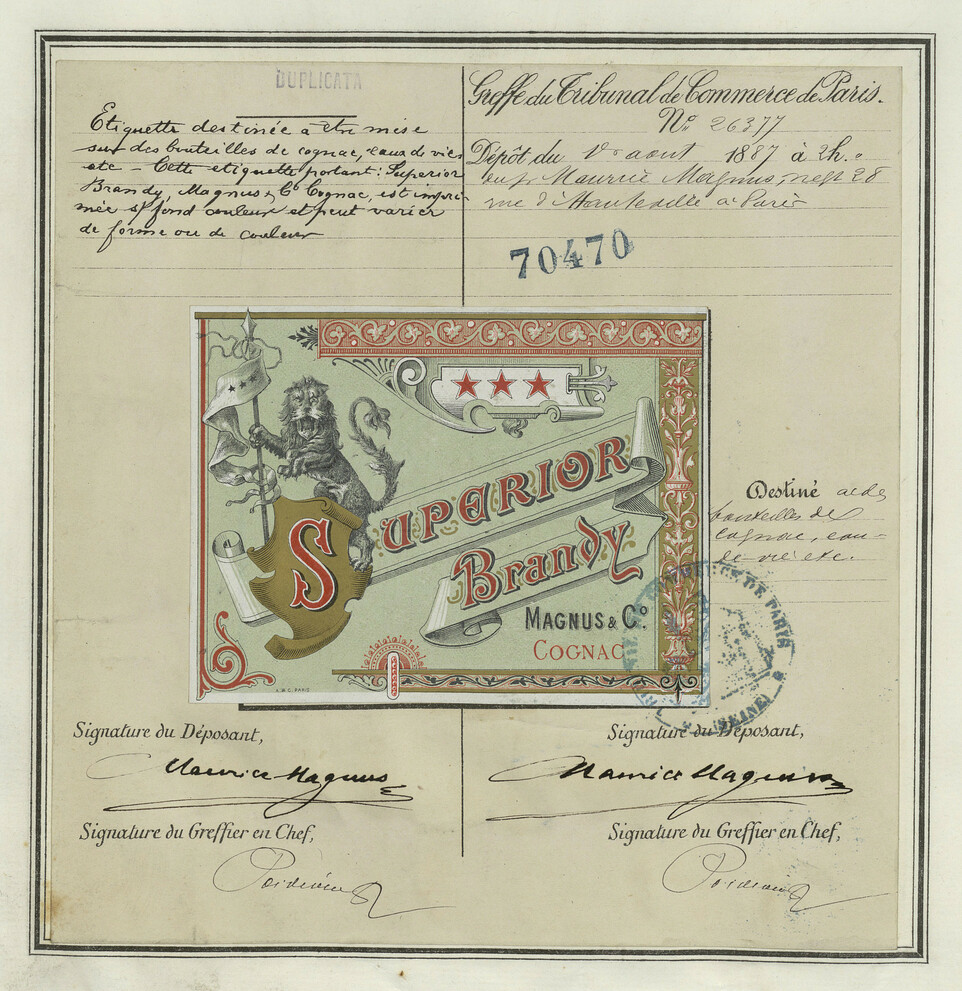 DUPLICATA
Etiquette destinée à être mise
sur des bouteilles de cognac, eaux de vies
etc – Cette etiquette portant: Superior
Brandy, Magnus & Co Cognac, est impri-
mée s/ fond couleur et peut varier
de forme ou de couleur
Greffe du Tribunal de Commerce de Paris.
No 26377
Dépôt du 1er aout 1887 à 2h.
Maurice Magnus, negt 28
rue d'Hauteville à Paris
70470
SUPERIOR
Brandy
MAGNUS & Co.
COGNAC
PARIS
Destiné à des
bouteilles de
cognac, eau-
de-vie etc.
DE PARIS
(SEINE)
Signature du Déposant,
Maurice Magnus
Signature du Greffier en Chef,
Signature du Déposant,
Maurice Magnus
Signature du Greffier en Chef,